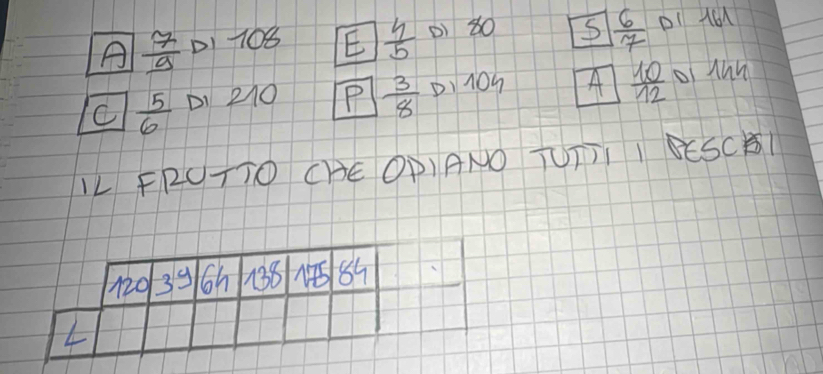 A 7/9 DI 108 E 4/5 DI 80 S 6/7 DI 161
C 5/6 DI 210 P 3/8 DI 104 A 10/12 DI 144
IL FRUTTO CHE ODIANO TUTTI I PESCI
120 39 64 138 175 84
L